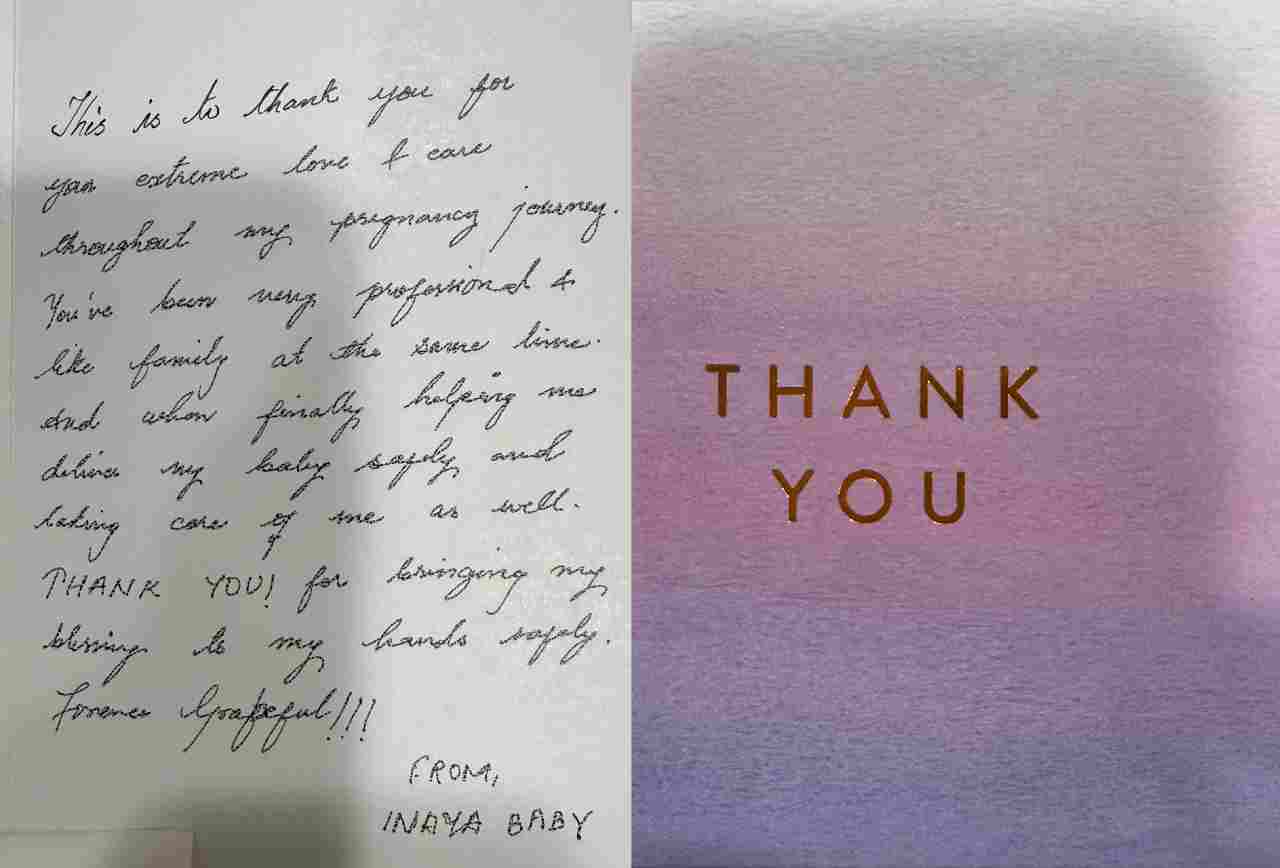 This is to thank you for
your extreme love & care
throughout my pregnancy journey.
You've been very professional &
like family at the same time.
And when finally helping me
deliver my baby safely and
taking care of me as well.
THANK YOU! for bringing my
blessing to my hands safely.
Forever Grateful!!!
FROM,
INAYA BABY
THANK
YOU